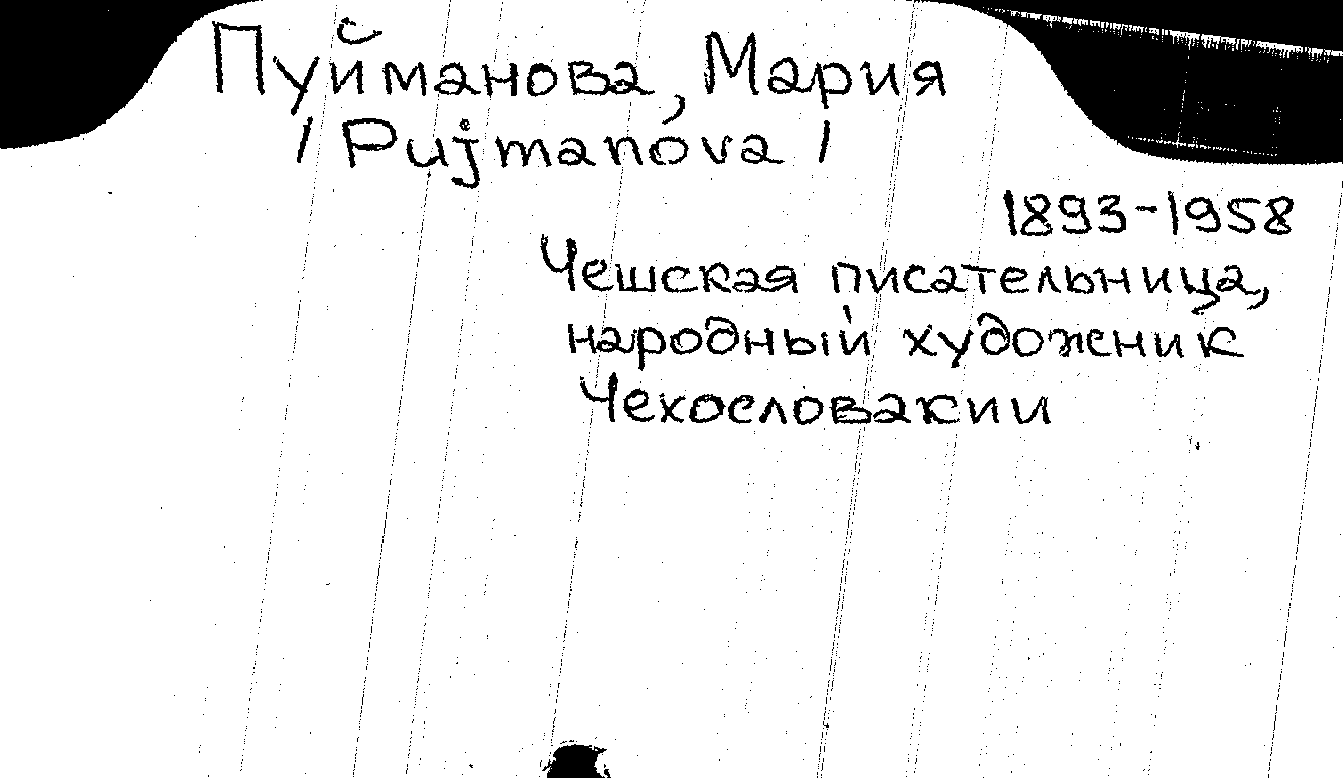 Пуйманова, Мария
/ Pujmanóva /
1893-1958
Чешская писательница,
народный художник
Чехословакии